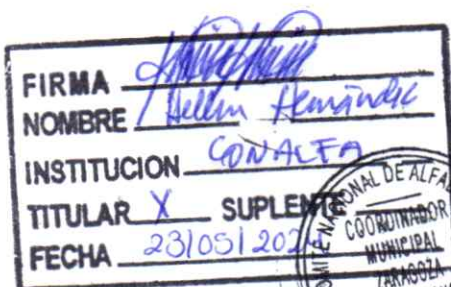 FIRMA
NOMBRE Hernández
INSTITUCION CONALFA
TITULAR X SUPLENTE
FECHA 23/05/202
COMITE NACIONAL DE ALFA
COORDINADOR
MUNICIPAL
ZARAGOZA